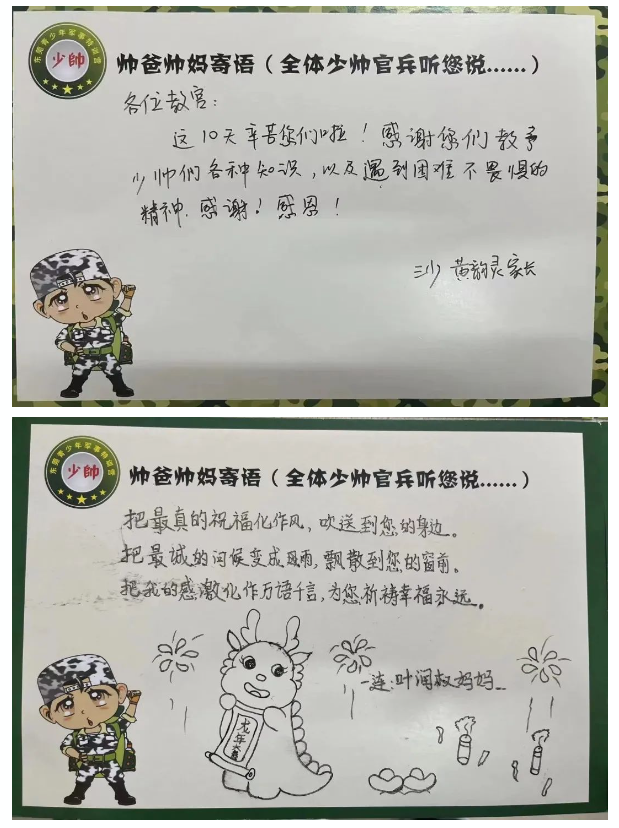 东莞青少年军事特训营
少帥
帅爸帅妈寄语（全体少帅官兵听您说......）
各位教官：
这10天辛苦您们啦！感谢您们教予
少帅们各种知识，以及遇到困难不畏惧的
精神.感谢！感恩！
三沙 黄韵灵家长
东莞青少年军事特训营
少帥
帅爸帅妈寄语（全体少帅官兵听您说......）
把最真的祝福化作风，吹送到您的身边。
把最诚的问候变成雨，飘散到您的窗前。
把我的感激化作万语千言，为您祈祷幸福永远。
一连:叶润权妈妈
龙年大吉